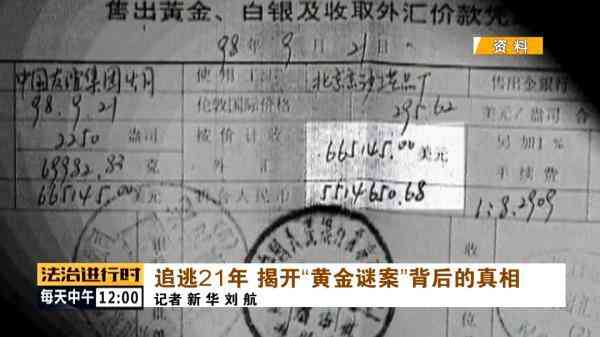 售出黄金、白银及收取外汇价款凭
98年9月21日
资料
98.9.21
伦敦国际价格
295.62
美元/盎司
2250 盎司
按价计收
665145.00 美元
另加1%
69982.83 克
外汇
手续费
665145.00 美元
折合人民币
5514650.68
1:8.2909
法治进行时
追逃21年 揭开“黄金谜案”背后的真相
每天中午 12:00
记者 新华 刘航